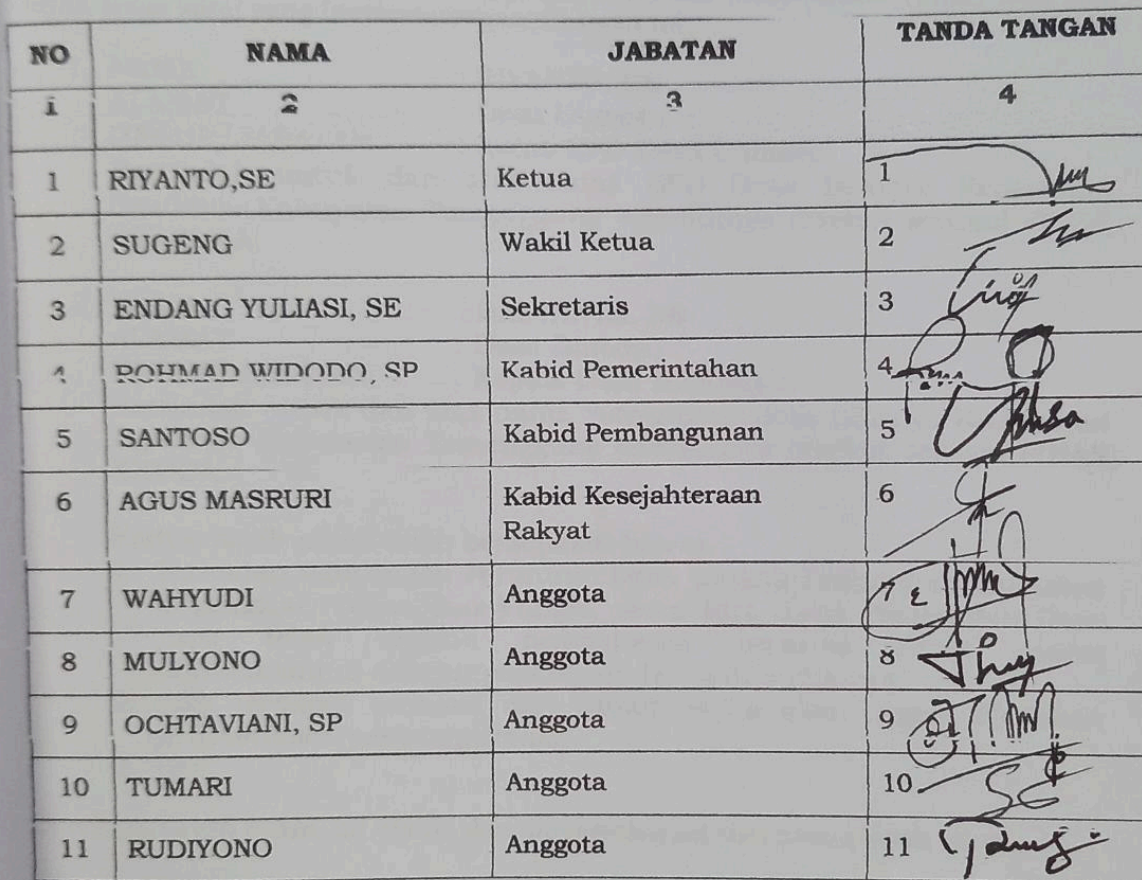 NO NAMA JABATAN TANDA TANGAN
1 2 3 4
1 RIYANTO,SE Ketua 1
2 SUGENG Wakil Ketua 2
3 ENDANG YULIASI, SE Sekretaris 3
4 ROHMAD WIDODO, SP Kabid Pemerintahan 4
5 SANTOSO Kabid Pembangunan 5
6 AGUS MASRURI Kabid Kesejahteraan 6
Rakyat
7 WAHYUDI Anggota 7
8 MULYONO Anggota 8
9 OCHTAVIANI, SP Anggota 9
10 TUMARI Anggota 10
11 RUDIYONO Anggota 11